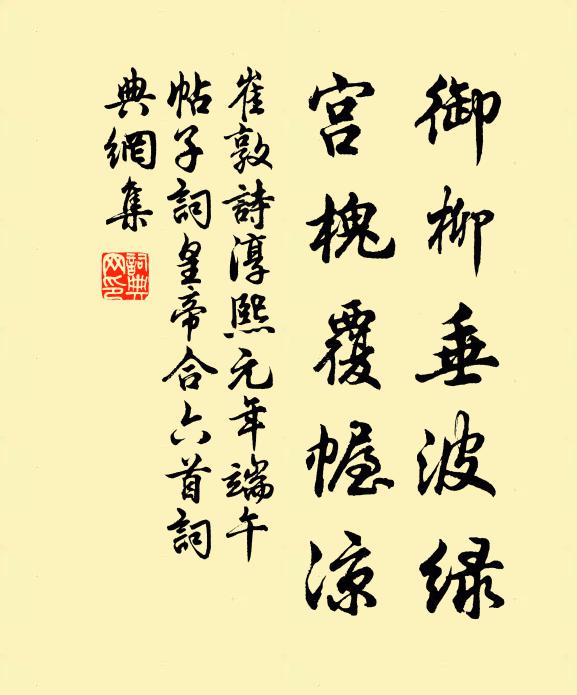 御柳垂波绿
宫槐覆幄凉
崔敦詩淳熙元年端午
帖子詞皇帝合六首詞
典網集
詞典
网印